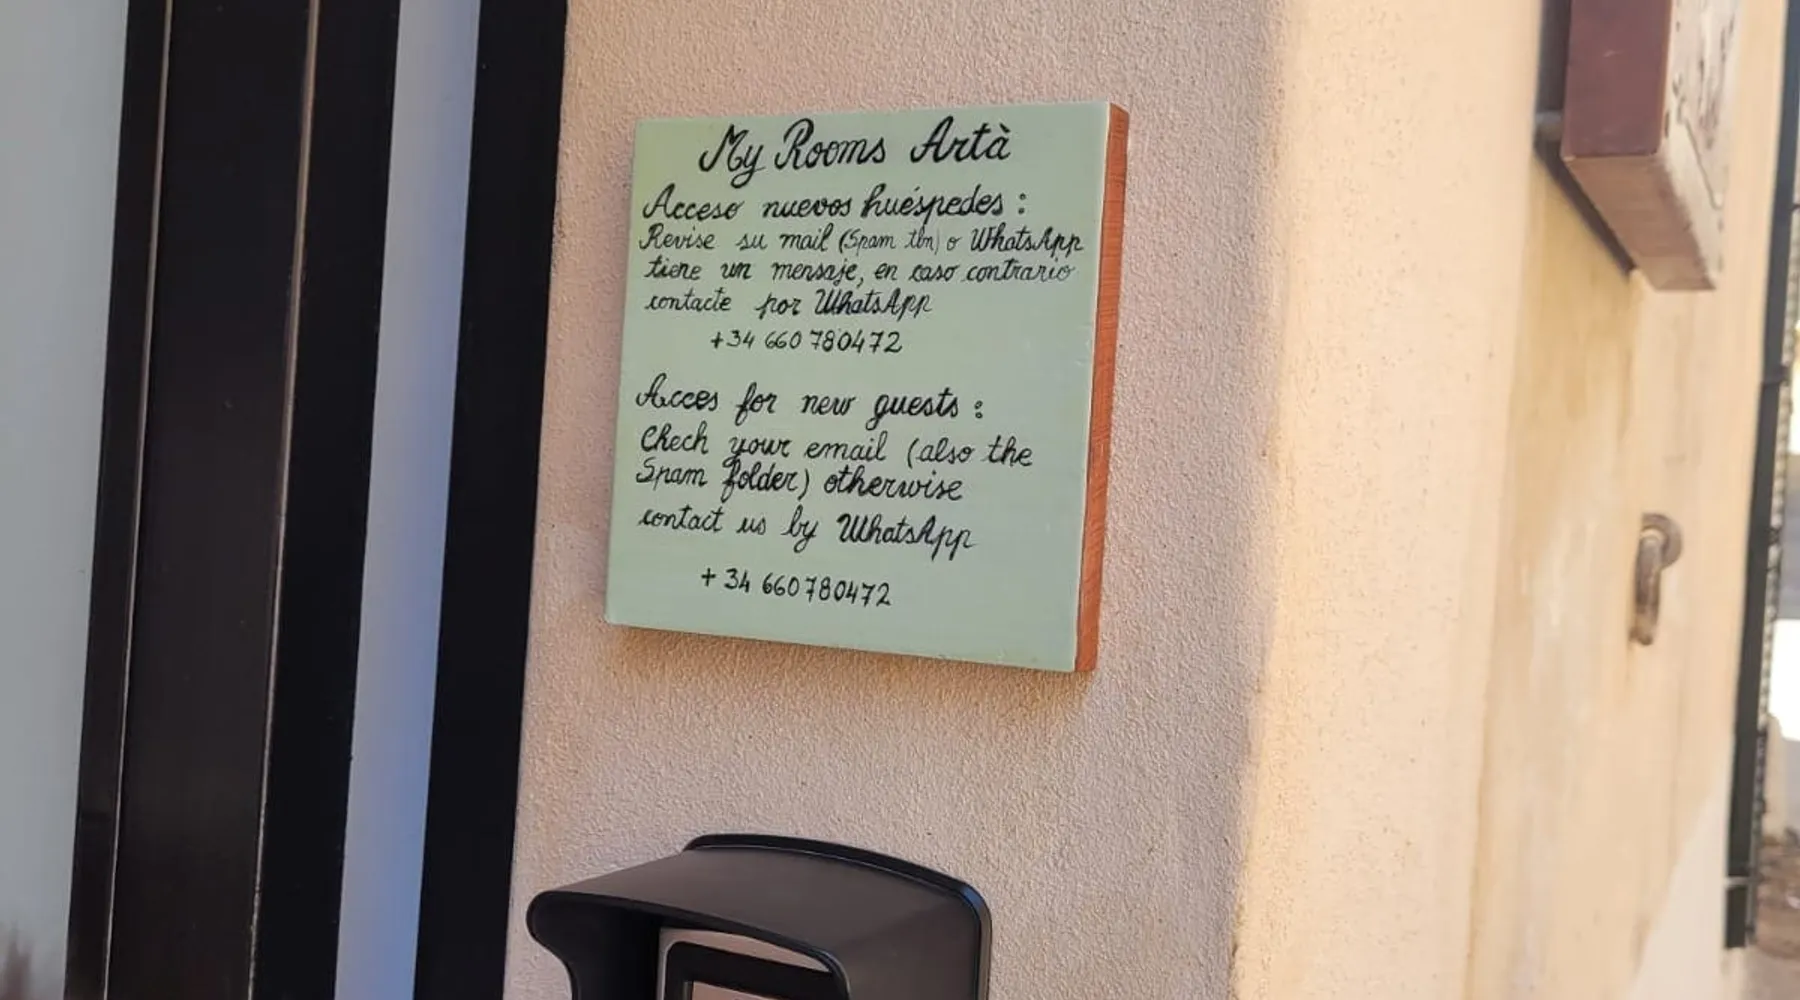 My Rooms Artà
Acceso nuevos huéspedes :
Revise su mail (Spam tbn) o WhatsApp
tiene un mensaje, en caso contrario
contacte por WhatsApp
+34 660 780472
Acces for new guests :
Chech your email (also the
Spam folder) otherwise
contact us by WhatsApp
+ 34 660780472